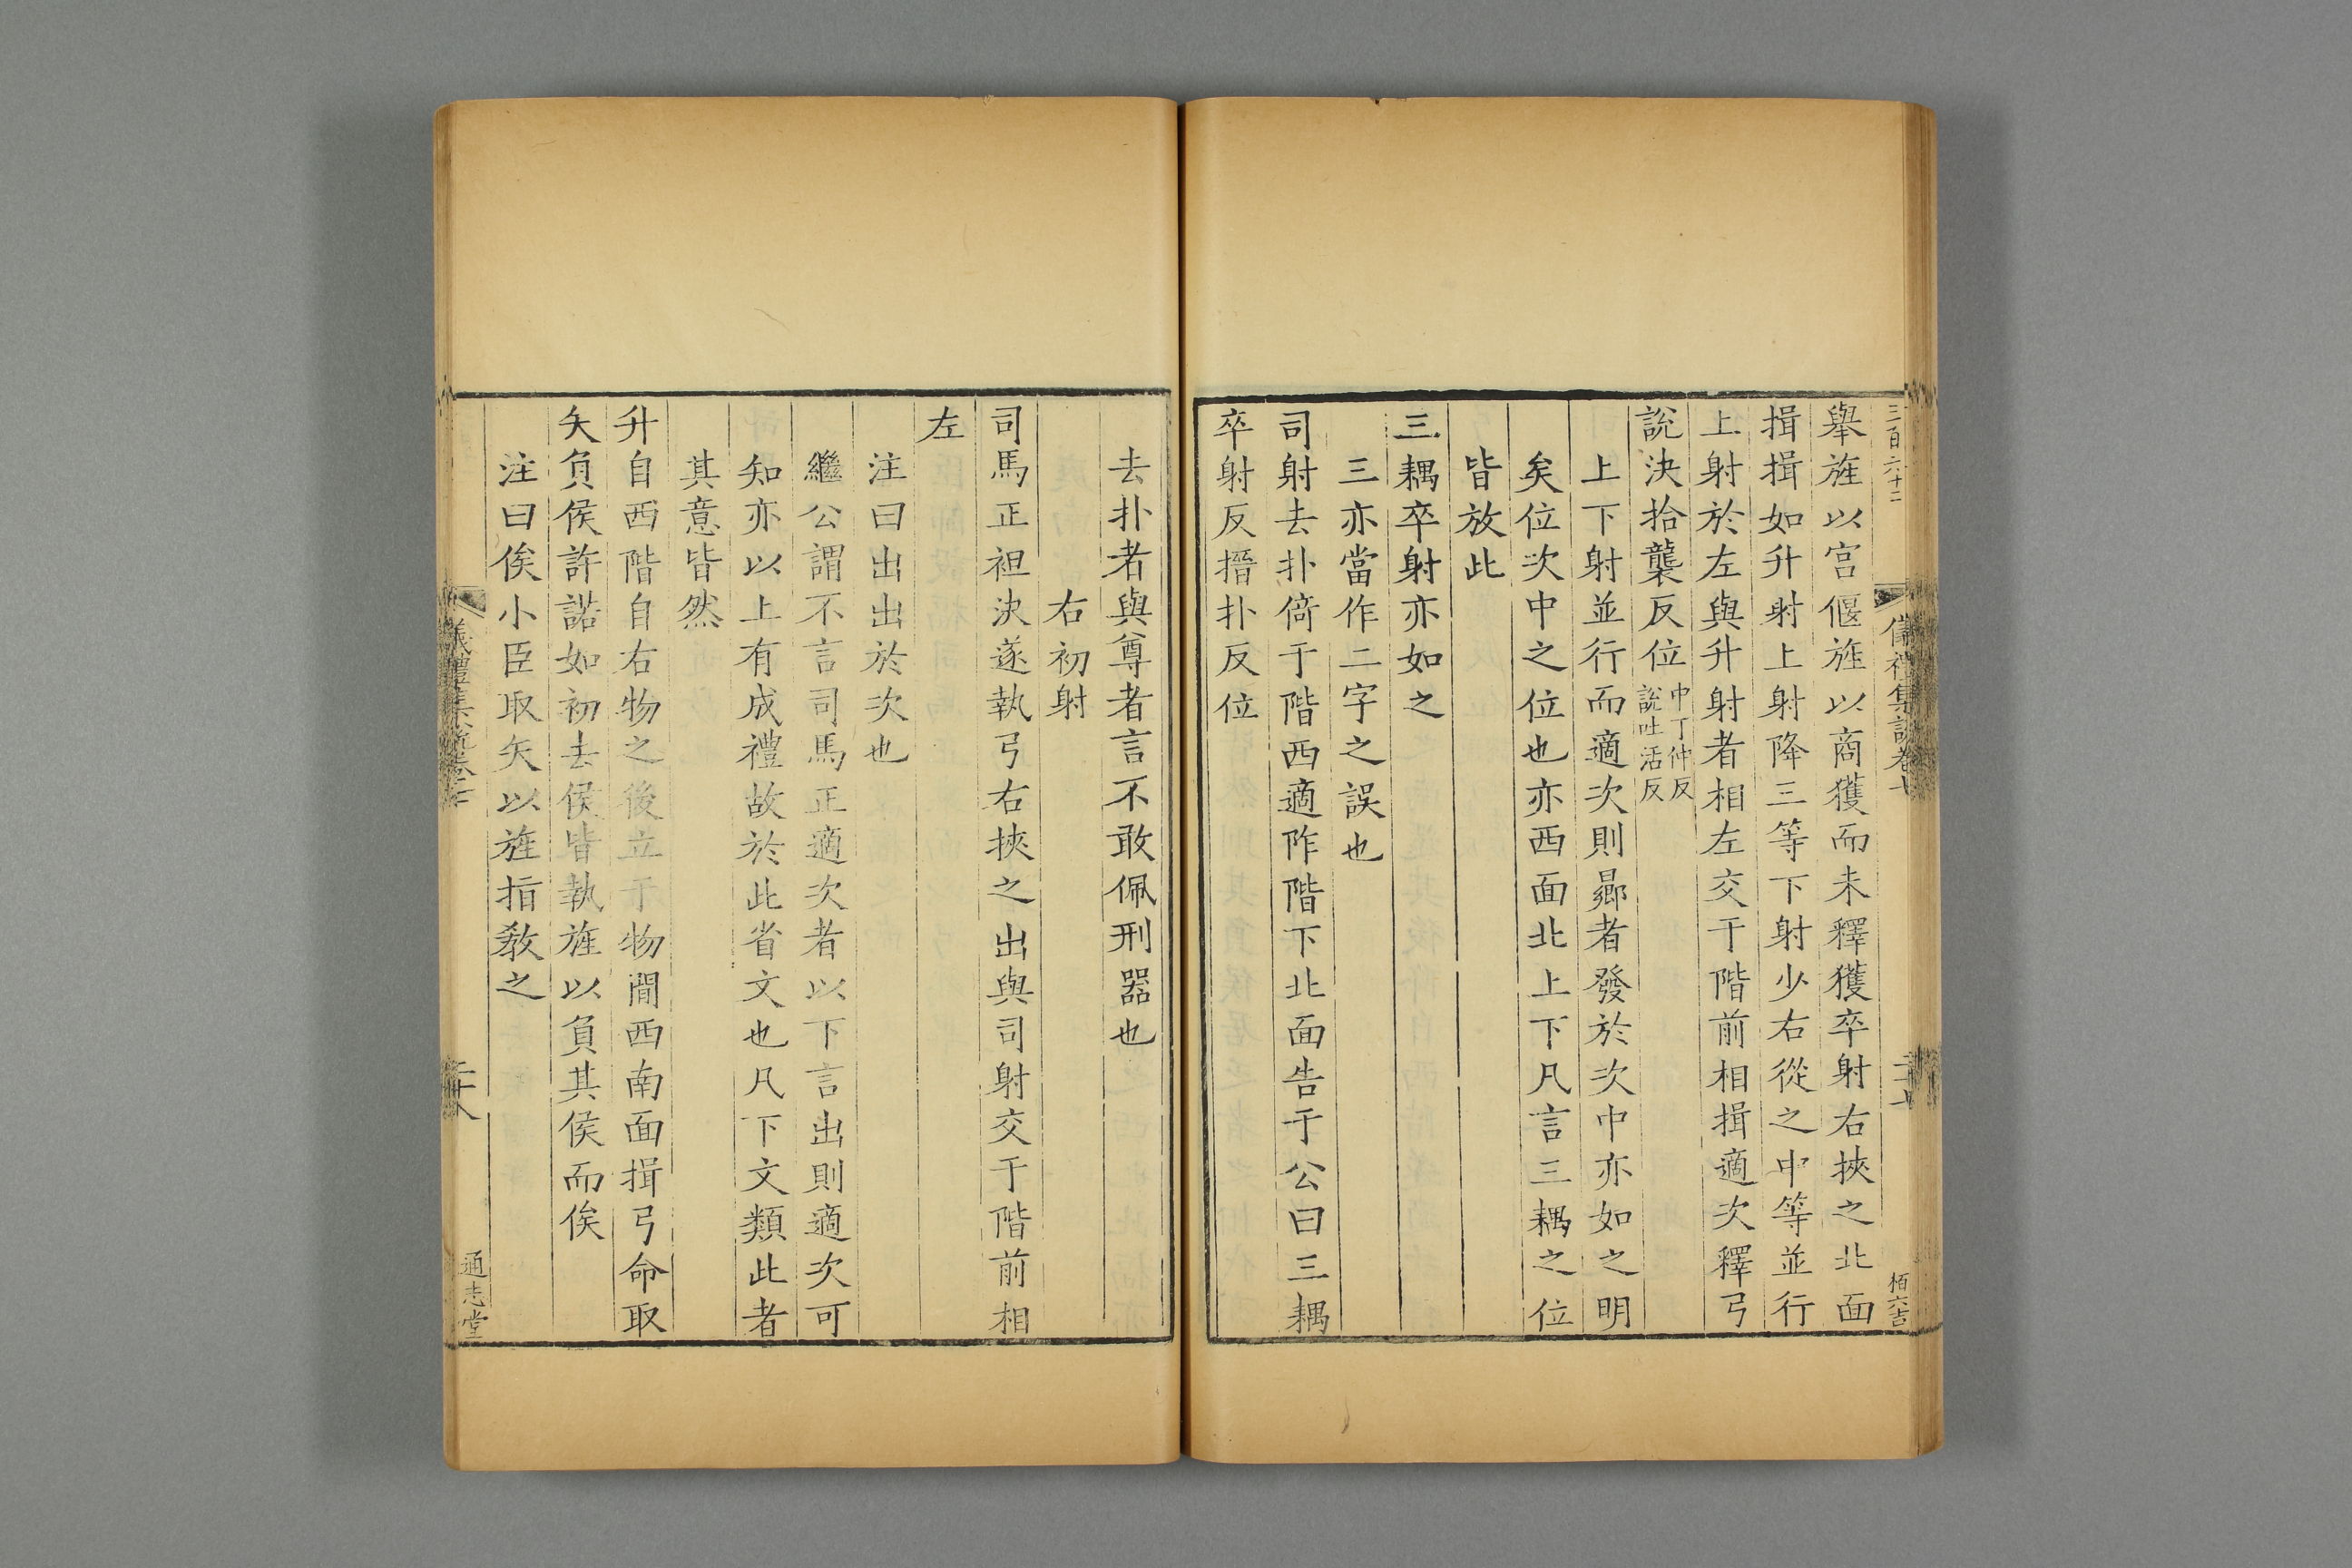 三百六十二
儀禮集說卷七
二十七
栢六吉
舉旌以宫偃旌以商獲而未釋獲卒射右挾之北面
揖揖如升射上射降三等下射少右從之中等並行
上射於左與升射者相左交于階前相揖適次釋弓
說決拾襲反位中丁仲反說吐活反
上下射並行而適次則曏者發於次中亦如之明
矣位次中之位也亦西面北上下凡言三耦之位
皆放此
三耦卒射亦如之
三亦當作二字之誤也
司射去扑倚于階西適阼階下北面告于公曰三耦
卒射反搢扑反位
去扑者與尊者言不敢佩刑器也
右初射
司馬正袒決遂執弓右挾之出與司射交于階前相
左
注曰出出於次也
繼公謂不言司馬正適次者以下言出則適次可
知亦以上有成禮故於此省文也凡下文類此者
其意皆然
升自西階自右物之後立于物間西南面揖弓命取
矢負侯許諾如初去侯皆執旌以負其侯而俟
注曰俟小臣取矢以旌指教之
儀禮集說卷七
二十八
通志堂